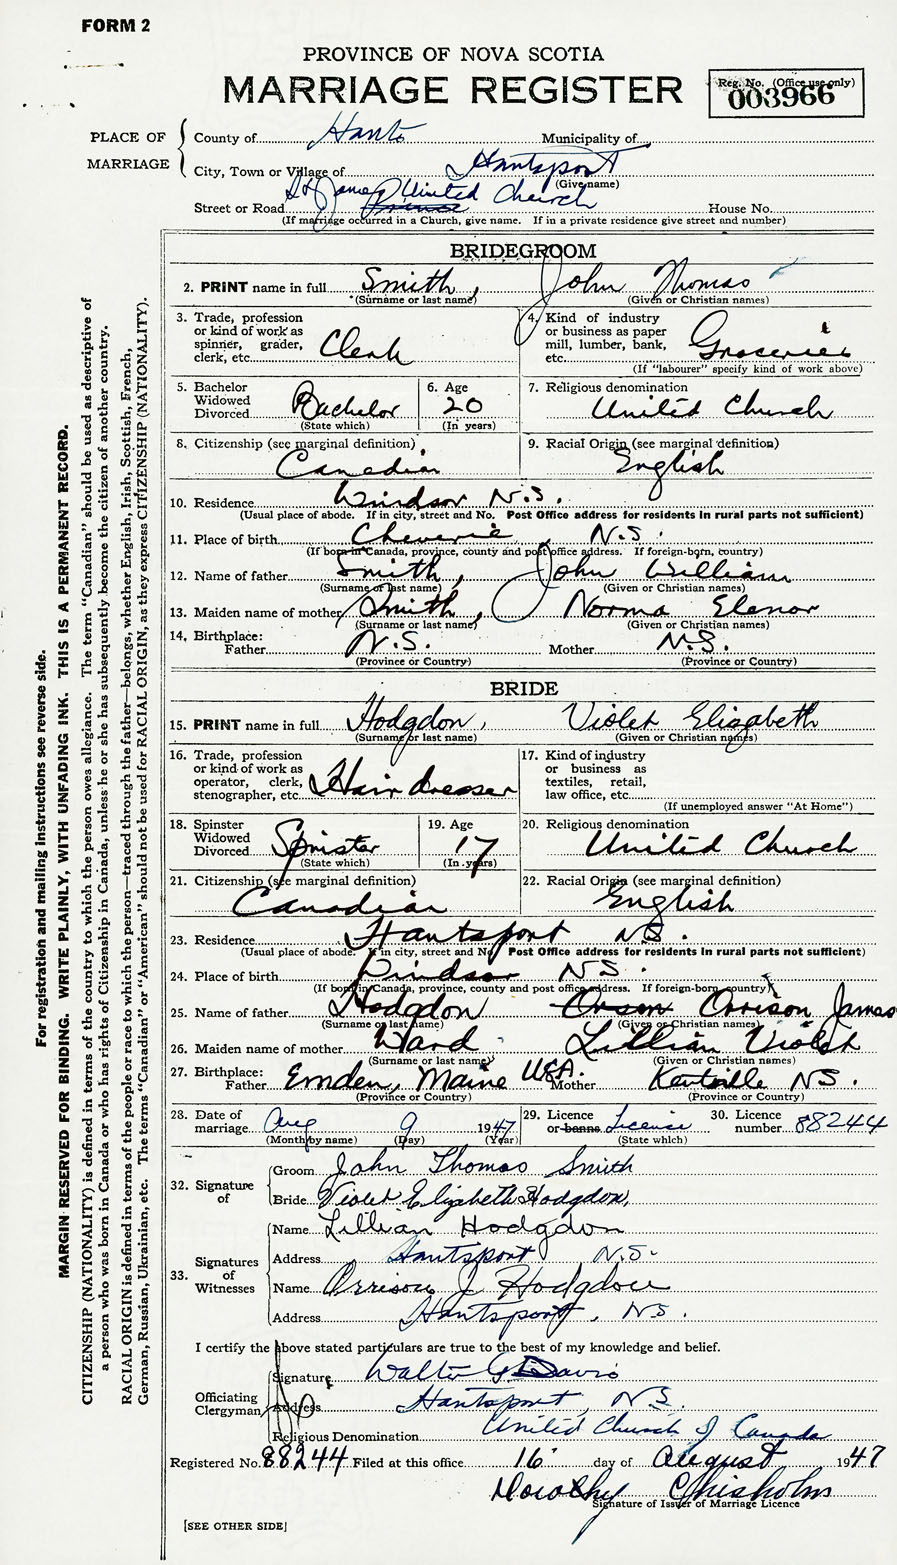 FORM 2
PROVINCE OF NOVA SCOTIA
MARRIAGE REGISTER
Reg. No. (Office use only)
003966
PLACE OF MARRIAGE
County of Hants Municipality of
City, Town or Village of Hantsport
(Give name)
Street or Road St James United Church House No.
(If marriage occurred in a Church, give name. If in a private residence give street and number)
BRIDEGROOM
2. PRINT name in full Smith, John Thomas
(Surname or last name) (Given or Christian names)
3. Trade, profession or kind of work as spinner, grader, clerk, etc. Clerk
4. Kind of industry or business as paper mill, lumber, bank, etc. Groceries
(If "labourer" specify kind of work above)
5. Bachelor Widowed Divorced Bachelor
(State which)
6. Age 20
(In years)
7. Religious denomination United Church
8. Citizenship (see marginal definition) Canadian
9. Racial Origin (see marginal definition) English
10. Residence Windsor N.S.
(Usual place of abode. If in city, street and No. Post Office address for residents in rural parts not sufficient)
11. Place of birth Cheverie, N.S.
(If born in Canada, province, county and post office address. If foreign-born, country)
12. Name of father Smith, John William
(Surname or last name) (Given or Christian names)
13. Maiden name of mother Smith, Norma Elenor
(Surname or last name) (Given or Christian names)
14. Birthplace:
Father N.S. Mother N.S.
(Province or Country) (Province or Country)
BRIDE
15. PRINT name in full Hodgdon, Violet Elizabeth
(Surname or last name) (Given or Christian names)
16. Trade, profession or kind of work as operator, clerk, stenographer, etc. Hairdresser
17. Kind of industry or business as textiles, retail, law office, etc.
(If unemployed answer "At Home")
18. Spinster Widowed Divorced Spinster
(State which)
19. Age 17
(In years)
20. Religious denomination United Church
21. Citizenship (see marginal definition) Canadian
22. Racial Origin (see marginal definition) English
23. Residence Hantsport N.S.
(Usual place of abode. If in city, street and No. Post Office address for residents in rural parts not sufficient)
24. Place of birth Windsor N.S.
(If born in Canada, province, county and post office address. If foreign-born country)
25. Name of father Hodgdon Orson Orrison James
(Surname or last name) (Given or Christian names)
26. Maiden name of mother Ward Lillian Violet
(Surname or last name) (Given or Christian names)
27. Birthplace:
Father Emden, Maine U.S.A. Mother Kentville N.S.
(Province or Country) (Province or Country)
28. Date of marriage Aug 9 1947
(Month by name) (Day) (Year)
29. Licence or banns License
(State which)
30. Licence number 88244
32. Signature of
Groom John Thomas Smith
Bride Violet Elizabeth Hodgdon,
33. Signatures of Witnesses
Name Lillian Hodgdon
Address Hantsport N.S.
Name Orrison J Hodgdon
Address Hantsport, N.S.
I certify the above stated particulars are true to the best of my knowledge and belief.
Officiating Clergyman
Signature Walter G Davis
Address Hantsport, N.S.
Religious Denomination United Church of Canada
Registered No. 88244 Filed at this office 16 day of August 1947
Dorothy Chisholm
Signature of Issuer of Marriage Licence
[SEE OTHER SIDE]
For registration and mailing instructions see reverse side.
MARGIN RESERVED FOR BINDING. WRITE PLAINLY, WITH UNFADING INK. THIS IS A PERMANENT RECORD.
CITIZENSHIP (NATIONALITY) is defined in terms of the country to which the person owes allegiance. The term "Canadian" should be used as descriptive of
a person who was born in Canada or who has rights of Citizenship in Canada, unless he or she has subsequently become the citizen of another country.
RACIAL ORIGIN is defined in terms of the people or race to which the person—traced through the father—belongs, whether English, Irish, Scottish, French,
German, Russian, Ukrainian, etc. The terms "Canadian" or "American" should not be used for RACIAL ORIGIN, as they express CITIZENSHIP (NATIONALITY).